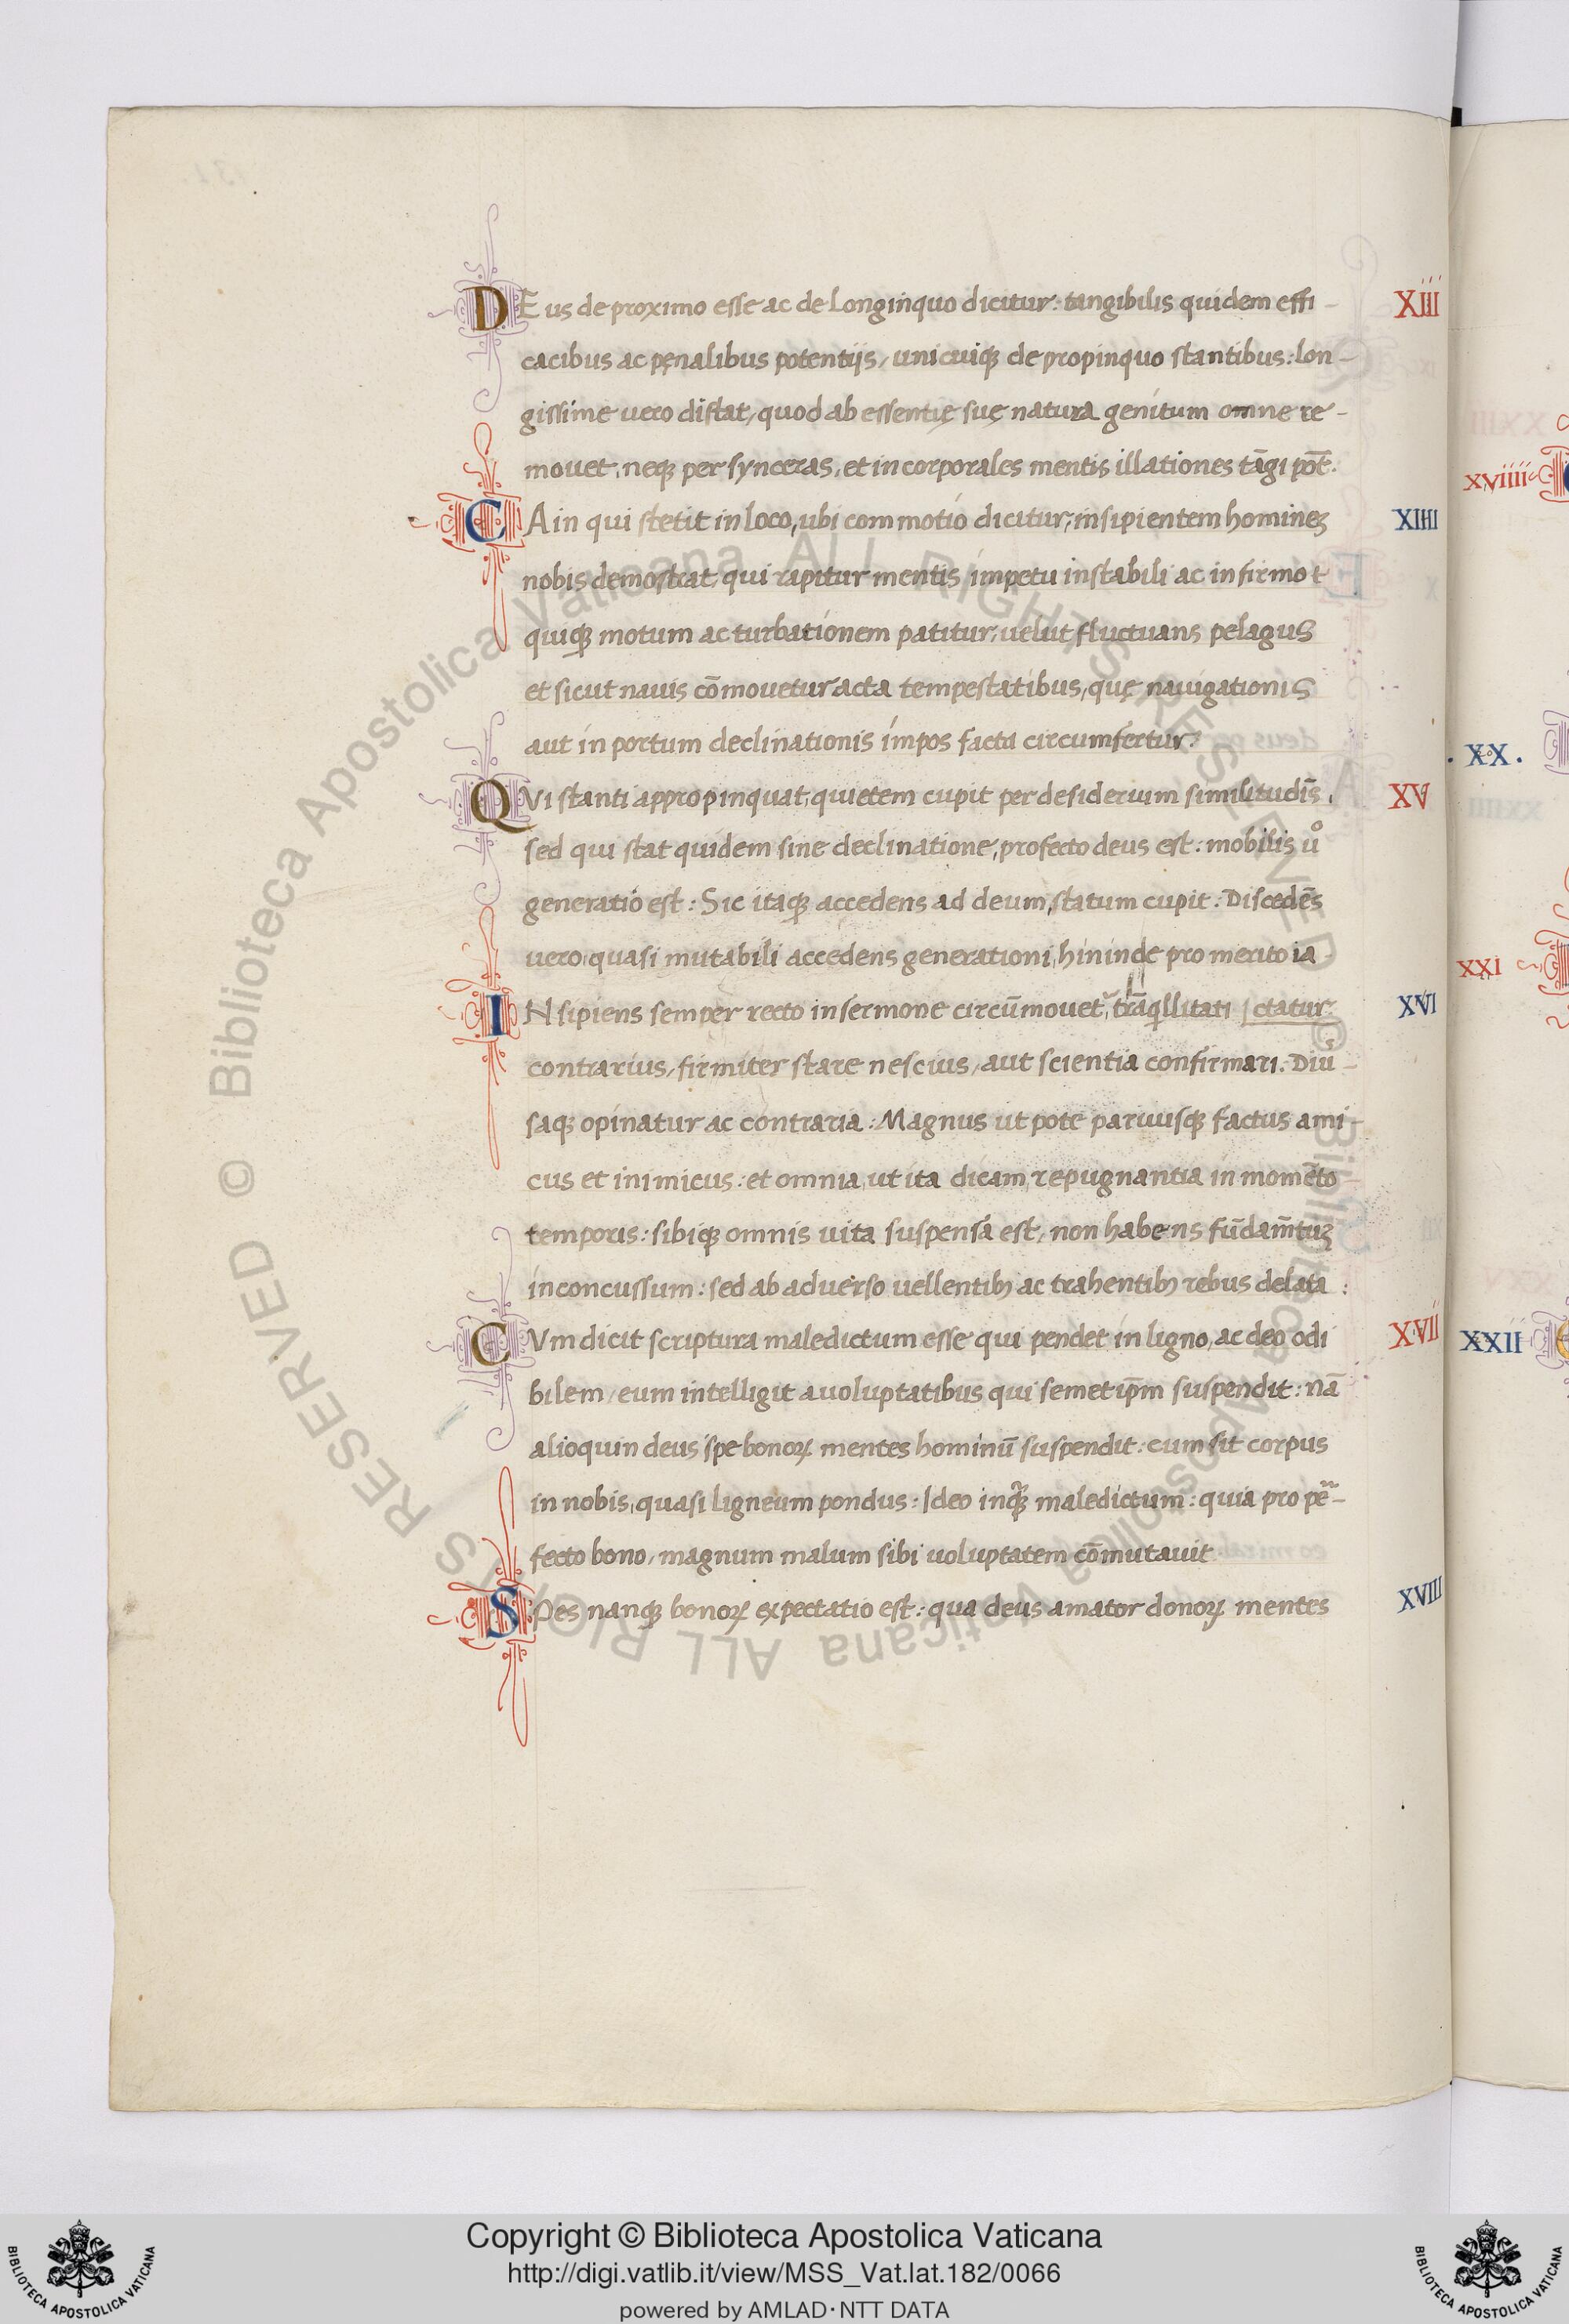 DEus de proximo esse ac de longinquo dicitur: tangibilis quidem effi- XIII
cacibus ac pęnalibus potentijs, unicuiqꝫ de propinquo stantibus: lon-
gissime uero distat, quod ab essentię suę natura genitum omne re-
mouet, neqꝫ per synceras, et incorporales mentis illationes tāgi pōt.
CAin qui stetit in loco, ubi commotio dicitur, insipientem homineꝫ XIIII
nobis demostrat, qui rapitur mentis impetu instabili ac infirmo t
quiqꝫ motum ac turbationem patitur, uelut fluctuans pelagus
et sicut nauis cōmouetur acta tempestatibus, quę nauigationis
aut in portum declinationis impos facta circumfertur.
QVi stanti appropinquat, quietem cupit per desiderium similitudīs, XV
sed qui stat quidem sine declinatione, profecto deus est: mobilis uͦ
generatio est: Sic itaqꝫ accedens ad deum, statum cupit: Discedēs
uero quasi mutabili accedens generationi, hininde pro merito ia-
INsipiens semper recto in sermone circūmouet᷑, trāqͥllitati | ctatur. XVI
contrarius, firmiter stare nescius, aut scientia confirmari. Diũ-
saqꝫ opinatur ac contraria: Magnus ut pote paruusqꝫ factus ami-
cus et inimicus: et omnia, ut ita dicam, repugnantia in momēto
temporis: sibiqꝫ omnis uita suspensa est, non habens fūdam̄tuꝫ
inconcussum: sed ab aduerso uellentibꝫ ac trahentibꝫ rebus delata:
CVm dicit scriptura maledictum esse qui pendet in ligno, ac deo odi XVII
bilem, eum intelligit a uoluptatibus qui semet ip̄m suspendit: nā
alioquin deus spe bonoꝝ mentes hominū suspendit: cum sit corpus
in nobis, quasi ligneum pondus: Ideo inqͣꝫ maledictum: quia pro pē-
fecto bono, magnum malum sibi uoluptatem cōmutauit
SPes nanqꝫ bonoꝝ expectatio est: qua deus amator donoꝝ mentes XVIII
xviiii
.XX.
XXI
XXII
© Biblioteca Apostolica Vaticana ALL RIGHTS RESERVED © Biblioteca Apostolica Vaticana ALL RIGHTS RESERVED
Copyright © Biblioteca Apostolica Vaticana
http://digi.vatlib.it/view/MSS_Vat.lat.182/0066
powered by AMLAD·NTT DATA
BIBLIOTECA APOSTOLICA VATICANA
BIBLIOTECA APOSTOLICA VATICANA